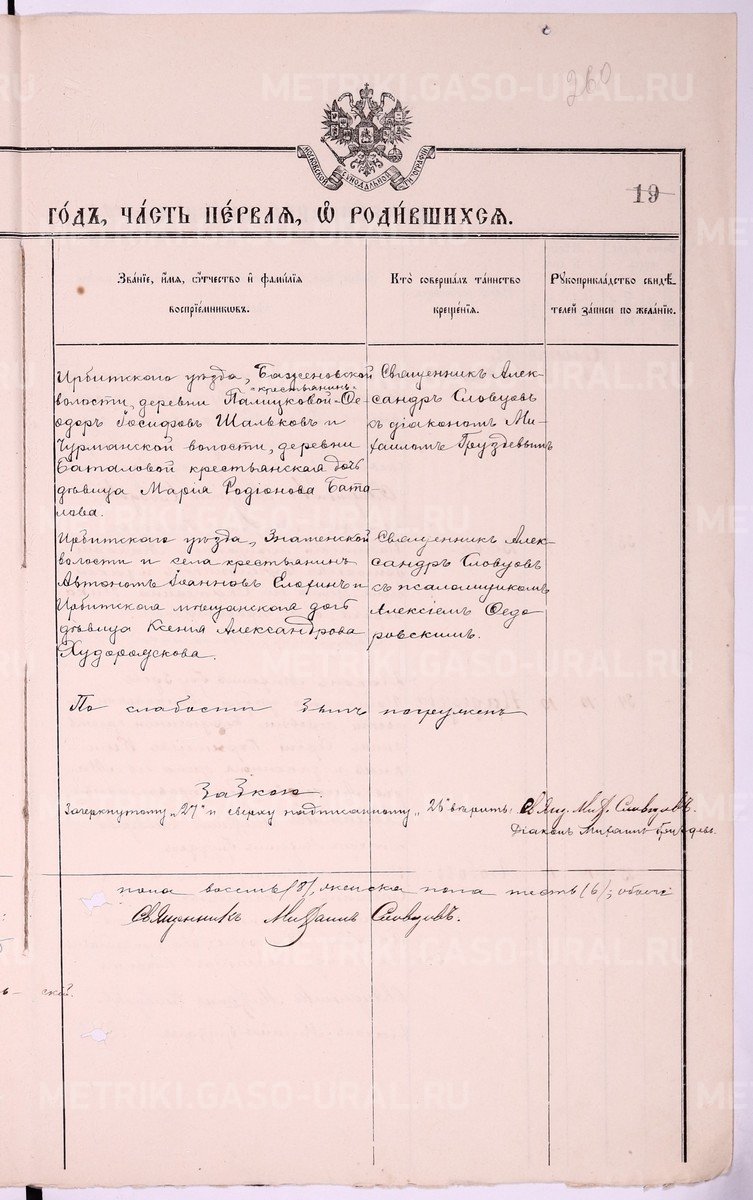 260
МОСКОВСКОЙ СѴНОДАЛЬНОЙ ТИПОГРАФІИ
19
ГО́ДЪ, ЧА́СТЬ ПЕ́РВАЯ, Ѡ҆ РОДИ́ВШИХСЯ.
Зва́нїе, и҆́мя, ѻ҆́тчество и҆ фами́лїя
воспрїе́мниковъ.
Кто̀ соверша́лъ та́инство
креще́нїя.
Рꙋкоприкла́дство свидѣ́-
телей за́писи по жела́нїю.
Ирбитскаго уѣзда, Баженовской
крестьянинъ
волости, деревни Палицковой Ѳе-
одоръ Іосифовъ Шальковъ и
Чурманской волости, деревни
Баталовой крестьянская дочь
дѣвица Марія Родіонова Бата-
лова.
Священникъ Алек-
сандръ Словцовъ
съ діакономъ Ми-
хаиломъ Груздевымъ
Ирбитскаго уѣзда, Знаменской
волости и села крестьянинъ
Автономъ Іоанновъ Елохинъ и
Ирбитская мѣщанская дочь
дѣвица Ксенія Александрова
Худорожкова.
Священникъ Алек-
сандръ Словцовъ
съ псаломщикомъ
Алексіемъ Ѳедо
ровскимъ.
По слабости былъ погруженъ
Зачеркнутому „27" и сверху надписанному „26" вѣрить: Свящ. Мих. Словцовъ.
Діаконъ Михаилъ Груздевъ.
пола восемь (8), женска пола шесть (6); обоего
Священникъ Михаилъ Словцовъ.
ской.
METRIKI.GASO-URAL.RU